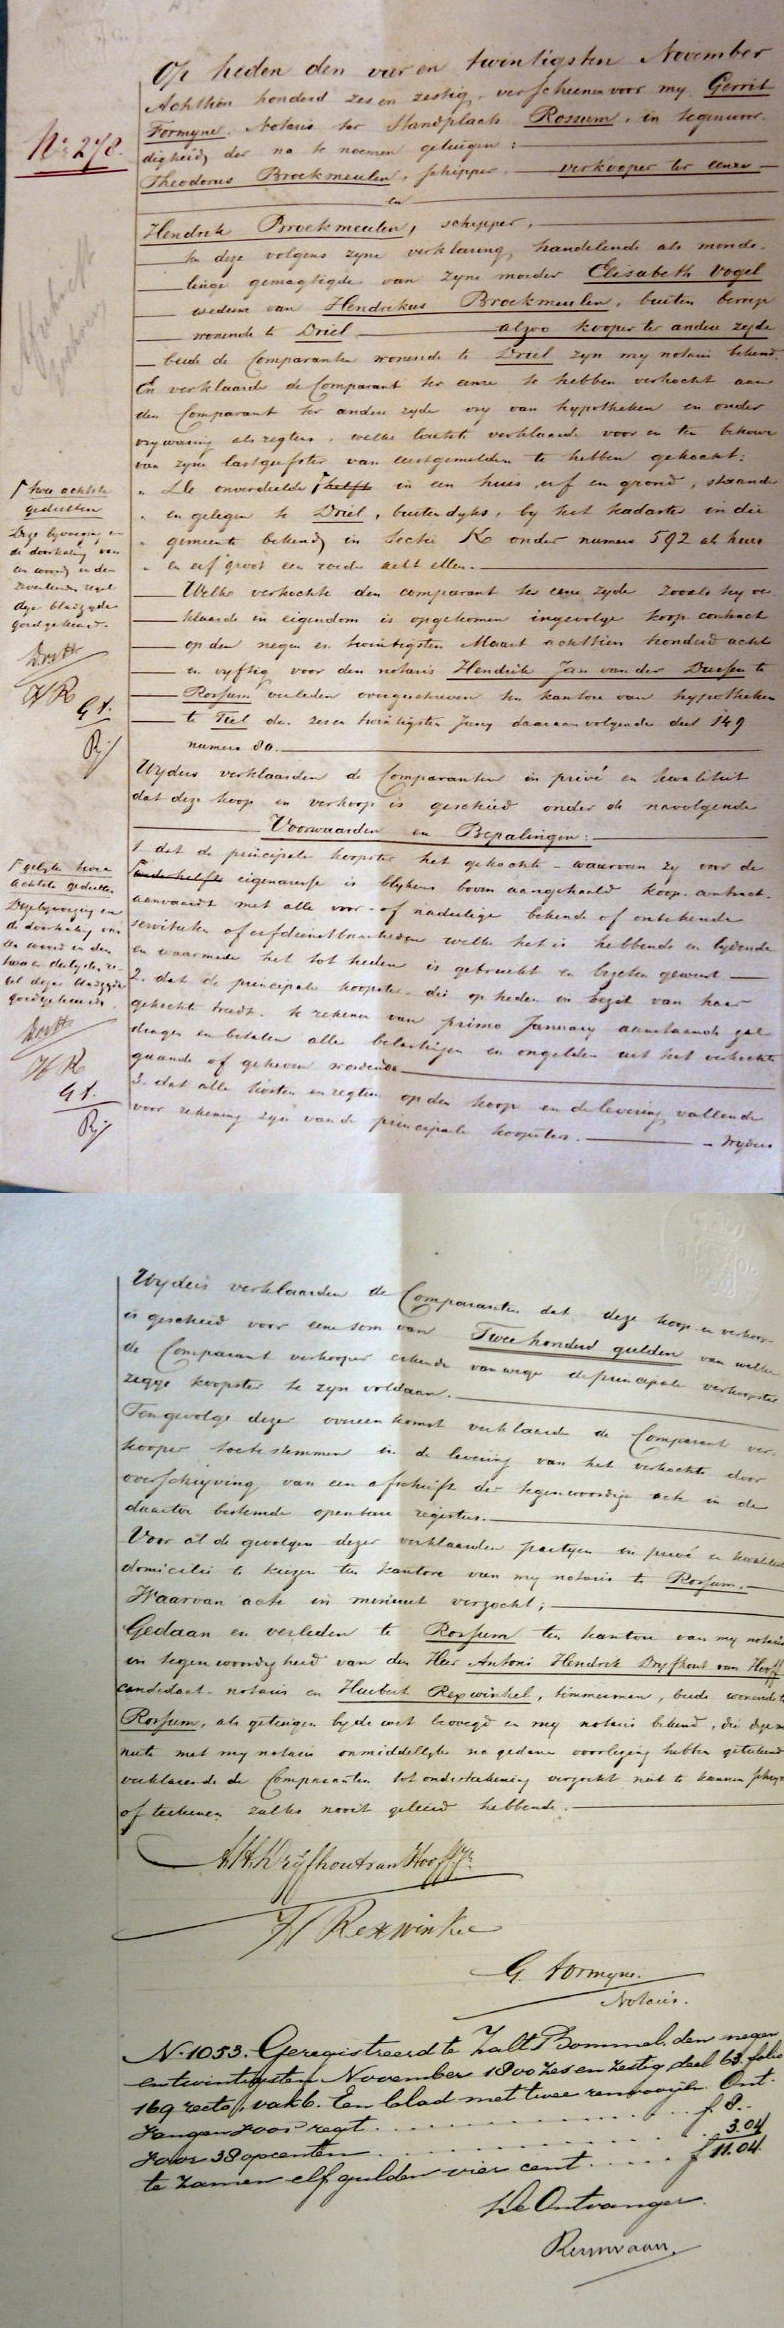 Op heden den vier en twintigsten November
Achttien honderd zes en zestig, verschenen voor my Gerrit
Formyne, Notaris ter Standplaats Rossum, in tegenwoor-
digheid der na te noemen getuigen:
No 278.
Theodorus Broekmeulen, schipper, verkooper ter eenre
en
Hendrik Broekmeulen, schipper,
In deze volgens zyne verklaring, handelende als monde-
linge gemagtigde van zyne moeder Elisabeth Vogel
weduwe van Hendrikus Broekmeulen, buiten beroep
wonende te Driel alzoo kooper ter andere zyde
beide de Comparanten wonende te Driel zyn my notaris bekend.
En verklaarde de Comparant ter eenre te hebben verkocht aan
den Comparant ter andere zyde vry van hypotheken en onder
vrywaring als regtens, welke laatste verklaarde voor en ten behoeve
van zyne lastgeefster van eerstgemelden te hebben gekocht:
" De onverdeelde helft in een huis, erf en grond, staande
" en gelegen te Driel, buitendyks, by het kadaster in die
" gemeente bekend in Sectie K onder numero 592 als huis
" en erf groot een roede acht ellen.
Welke verkochte den comparant ter eene zyde zooals hy ver
klaarde in eigendom is opgekomen ingevolge koop contract
op den negen en twintigsten Maart achttien honderd acht
en vyftig voor den notaris Hendrik Jan van der Duessen te
Rossum verleden overgeschreven ten kantore van hypotheken
te Tiel den zes en twintigsten Juny daaraanvolgende deel 149
numero 80.
twee achtste
gedeelten
Deze byvoeging en
de doorhaling van
een woord in den
zeventienden regel
dezer bladzyde
goedgekeurd.
HR
G F.
Wyders verklaarden de Comparanten in privé en kwaliteit
dat deze koop en verkoop is geschied onder de navolgende
Voorwaarden en Bepalingen:
1. dat de principale koopster het gekochte - waarvan zy voor de
onde helft eigenaresse is blykens boven aangehaald koop-contract-
aanvaardt met alle voor- of nadeelige bekende of onbekende
servituten of erfdienstbaarheden welke het is hebbende en lydende
en waarmede het tot heden is gebruikt en bezeten geweest
2. dat de principale koopster die op heden in bezit van haar
gekochte treedt, te rekenen van primo January aanstaande zal
dragen en betalen alle belastingen en ongelden uit het verkochte
gaande of geheven wordende
3. dat alle kosten en regten op den koop en de levering vallende
voor rekening zyn van de principale koopster. Wyders
gelyke twee
achtste gedeelten
Deze byvoeging en
de doorhaling van
een woord in den
twee en dertigsten re-
gel dezer bladzyde
goedgekeurd.
HR
G F.
Wyders verklaarden de Comparanten dat deze koop en verkoop
is geschied voor eene som van Twee honderd gulden van welke
de Comparant verkooper erkende vanwege de principale verkoopster
zegge koopster te zyn voldaan.
Tengevolge dezer overeenkomst verklaarde de Comparant ver-
kooper toetestemmen in de levering van het verkochte door
overschryving van een afschrift der tegenwoordige acte in de
daartoe bestemde openbare registers.
Voor al de gevolgen dezer verklaarden partyen in privé en kwaliteit
domicilie te kiezen ten kantore van my notaris te Rossum.
Waarvan acte in minuut verzocht;
Gedaan en verleden te Rossum ten kantore van my notaris
in tegenwoordigheid van den Heer Antoni Hendrik Dryfhout van Hooff
candidaat-notaris en Huibert Rexwinkel, timmerman, beide wonende te
Rossum, als getuigen by de wet bevoegd en my notaris bekend, die deze mi
nute met my notaris onmiddellyk na gedane voorlezing hebben geteekend
verklarende de Comparanten tot onderteekening verzocht niet te kunnen schryven
of teekenen zulks nooit geleerd hebbende.
A.H. Dryfhout van Hooff Jr.
H Rexwinkel
G. Formyne.
Notaris.
N. 1053. Geregistreerd te Zalt Bommel den negen
en twintigsten November 1800 zes en zestig deel 63 folio
169 recto, vak 6. Een blad met twee renvooijen. Ont-
vangen voor regt f 8.-
voor 38 opcenten 3.04
te zamen elf gulden vier cent f 11.04
De Ontvanger